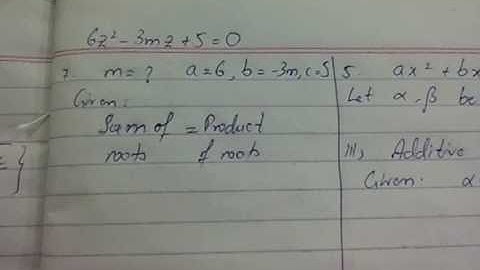 6z² - 3mz + 5 = 0
7. m = ? a = 6, b = -3m, c = 5
Given:
Sum of = Product
roots of roots
= }
5. ax² + bx
Let α, β be
iii, Additive
Given: α